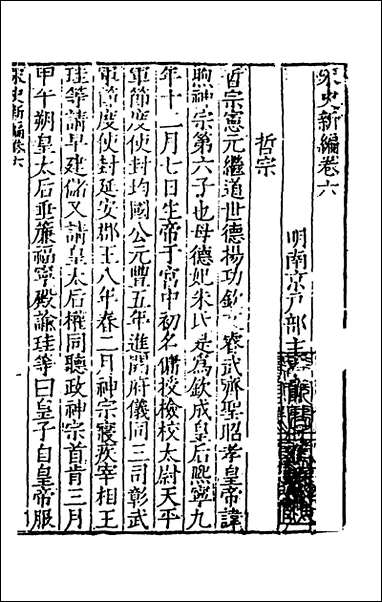 宋史新編卷六
明南京戶部主
哲宗
哲宗憲元繼道世德揚功欽文睿武齊聖昭孝皇帝諱
煦神宗第六子也母德妃朱氏是爲欽成皇后熙寧九
年十二月七日生帝于宮中初名傭授檢校太尉天平
軍節度使封均國公元豐五年進開府儀同三司彰武
軍節度使封延安郡王八年春二月神宗寢疾宰相王
珪等請早建儲又請皇太后權同聽政神宗首肯三月
甲午朔皇太后垂簾福寧殿諭珪等曰皇子自皇帝服
宋史新編卷六